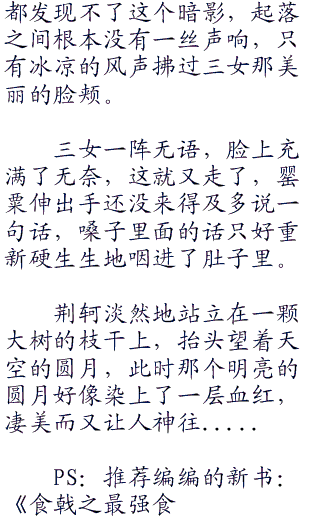 都发现不了这个暗影，起落
之间根本没有一丝声响，只
有冰凉的风声拂过三女那美
丽的脸颊。
三女一阵无语，脸上充
满了无奈，这就又走了，罂
粟伸出手还没来得及多说一
句话，嗓子里面的话只好重
新硬生生地咽进了肚子里。
荆轲淡然地站立在一颗
大树的枝干上，抬头望着天
空的圆月，此时那个明亮的
圆月好像染上了一层血红，
凄美而又让人神往.....
PS：推荐编编的新书：
《食戟之最强食